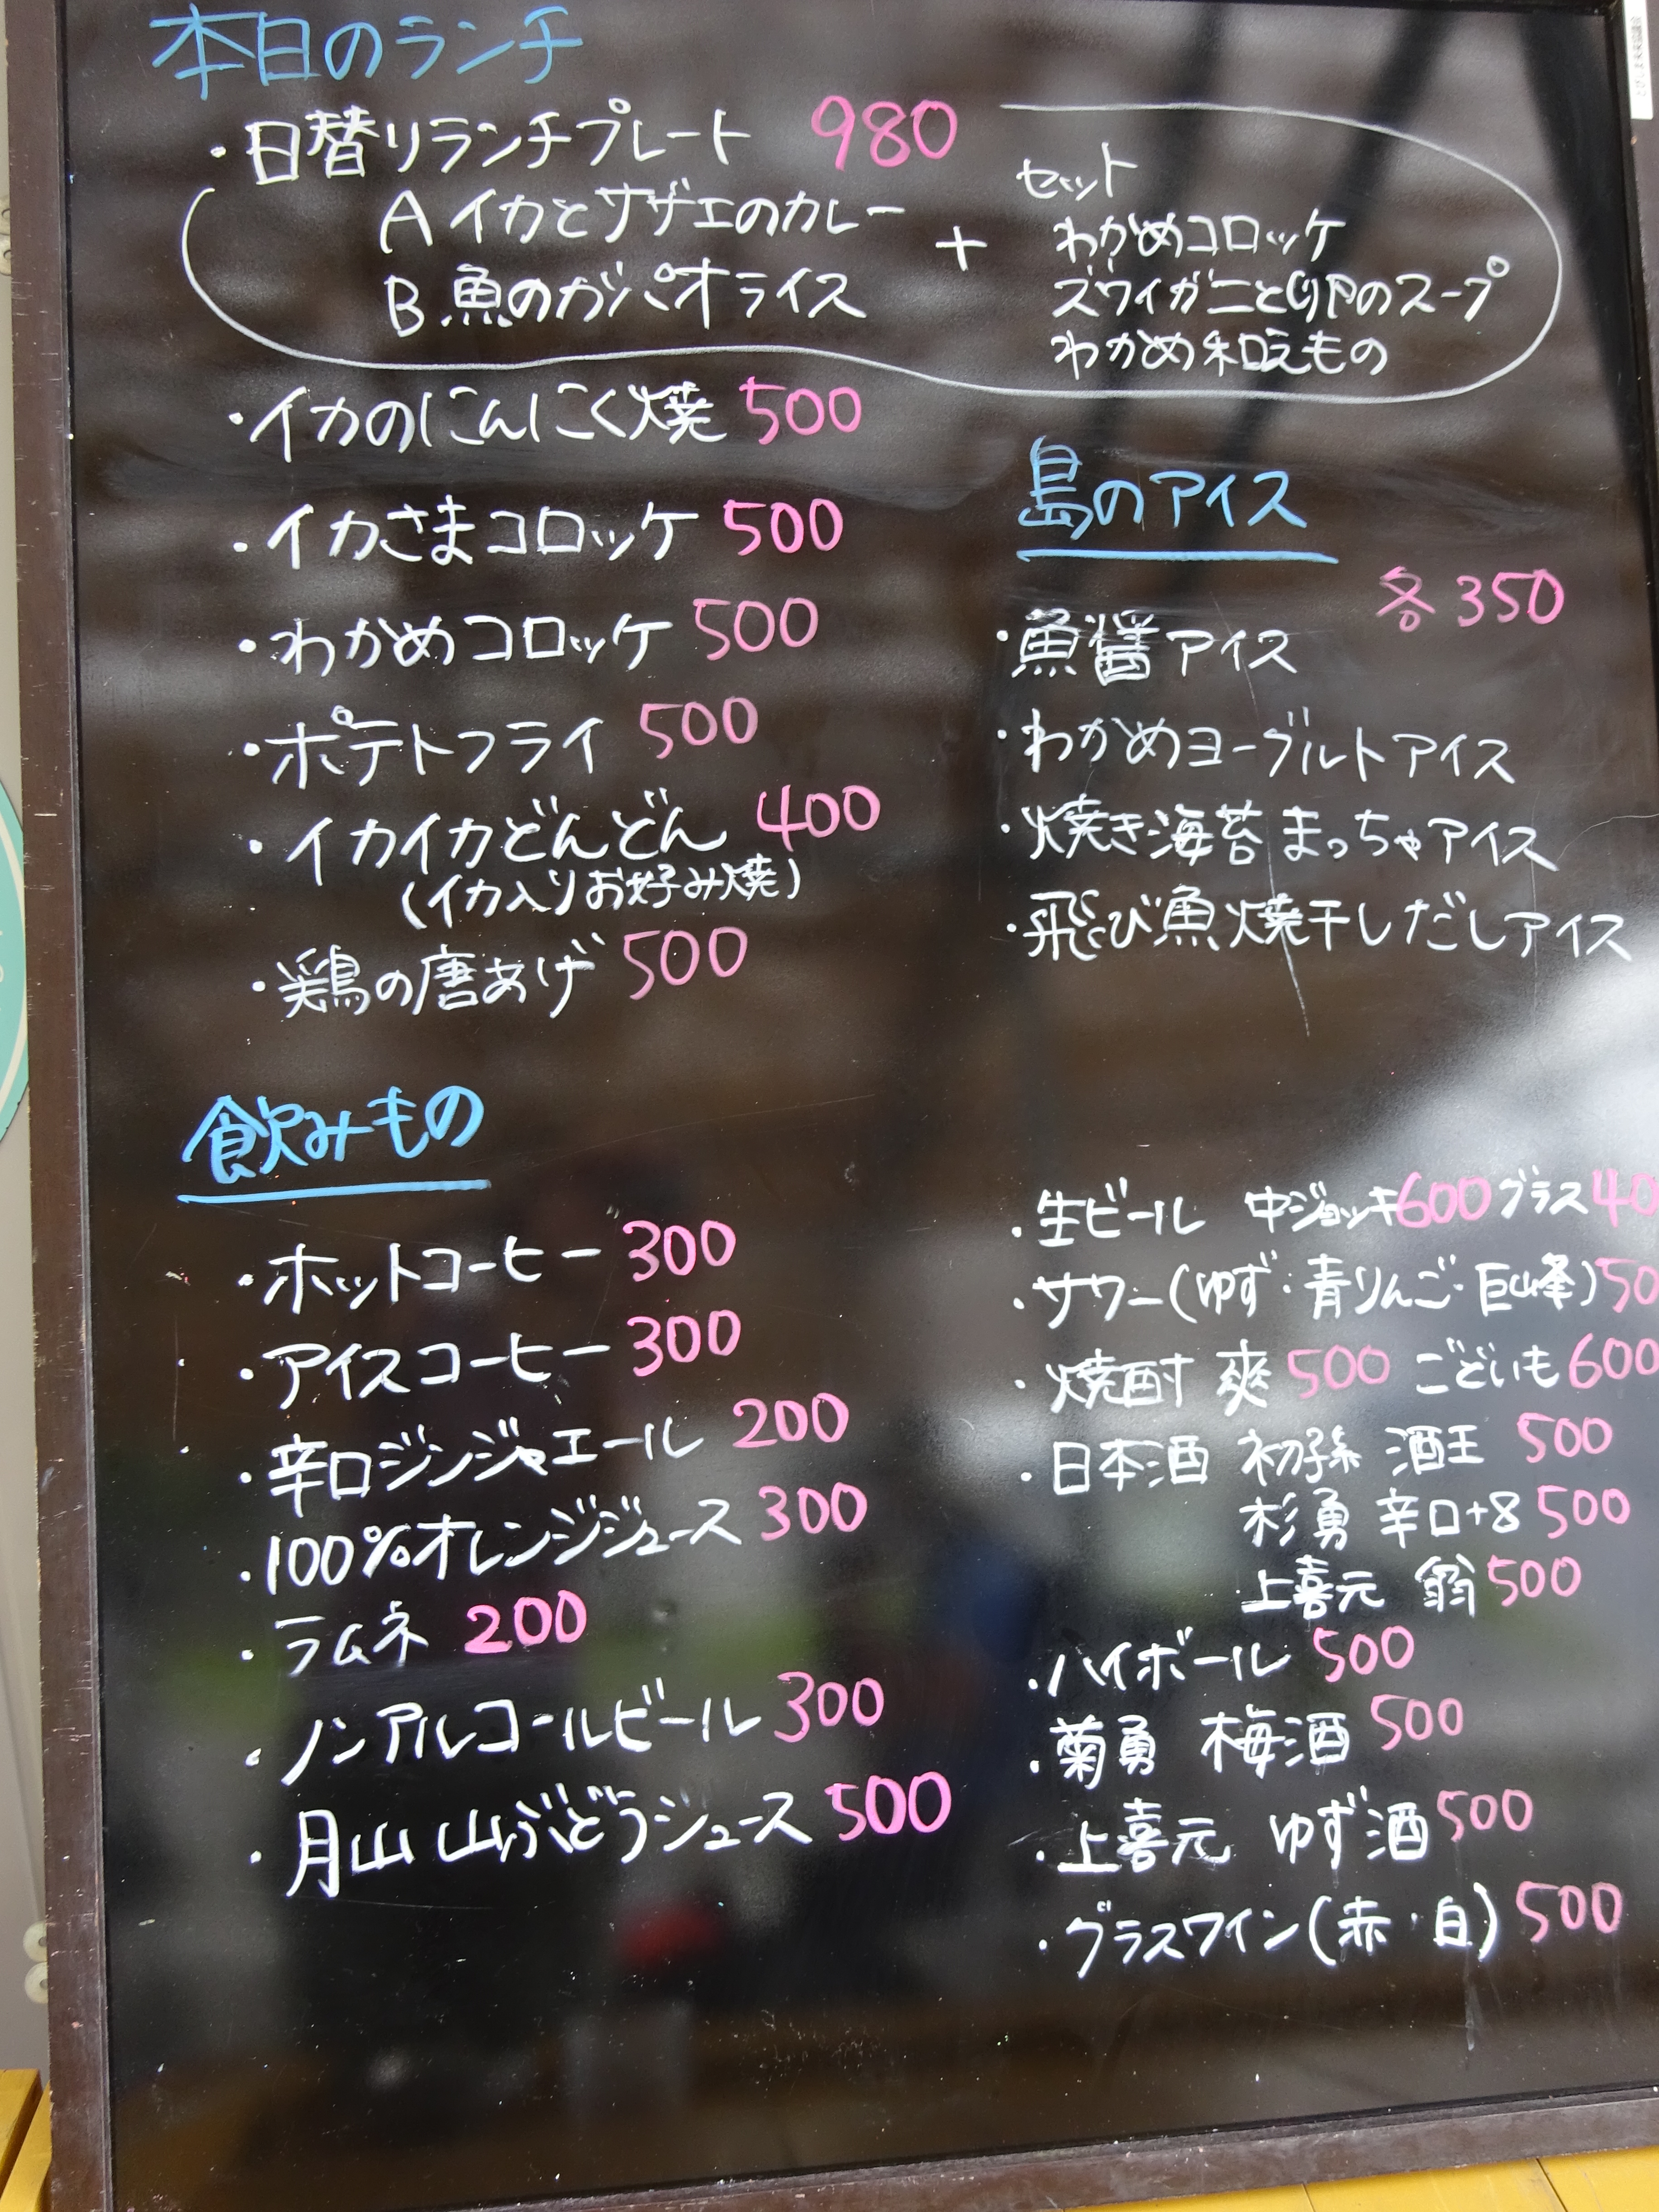 本日のランチ
・日替りランチプレート 980
A イカとサザエのカレー
B.魚のガパオライス
+
セット
わかめコロッケ
ズワイガニと卵のスープ
わかめ和えもの
・イカのにんにく焼 500
・イカさまコロッケ 500
・わかめコロッケ 500
・ポテトフライ 500
・イカイカどんどん 400
(イカ入りお好み焼)
・鶏の唐あげ 500
島のアイス
各350
・魚醤アイス
・わかめヨーグルトアイス
・焼き海苔まっちゃアイス
・飛び魚焼干しだしアイス
飲みもの
・ホットコーヒー 300
・アイスコーヒー 300
・辛口ジンジャエール 200
・100%オレンジジュース 300
・ラムネ 200
・ノンアルコールビール 300
・月山 山ぶどうジュース 500
・生ビール 中ジョッキ600 グラス40
・サワー(ゆず・青りんご・巨峰)50
・焼酎 爽 500 ごどいも 600
・日本酒 初孫 酒王 500
杉勇 辛口+8 500
上喜元 翁 500
・ハイボール 500
・菊勇 梅酒 500
・上喜元 ゆず酒 500
・グラスワイン(赤・白) 500